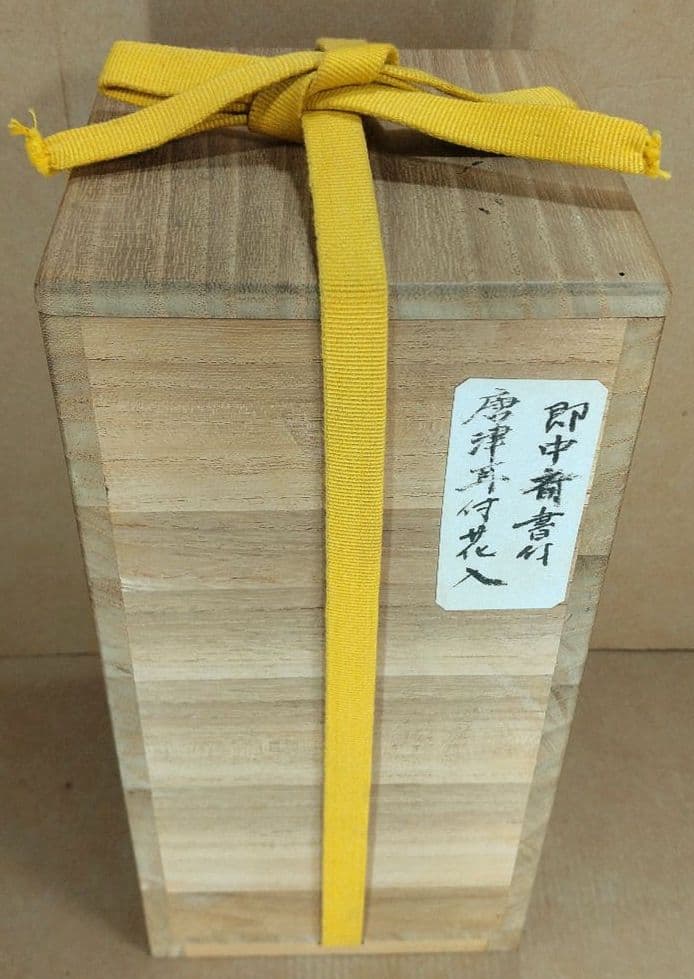 即中斎書付
唐津耳付花入